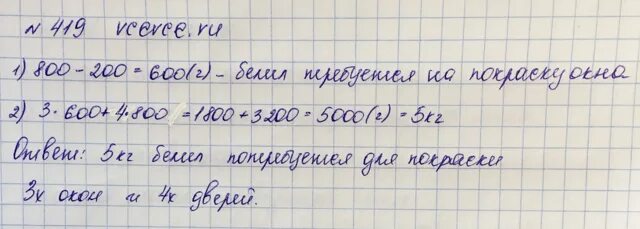 № 419 vcevce.ru
1) 800 - 200 = 600 (г) - белил требуется на покраску окна
2) 3 · 600 + 4 · 800 = 1800 + 3200 = 5000 (г) = 5 кг
Ответ: 5 кг белил потребуется для покраски
3х окон и 4х дверей.